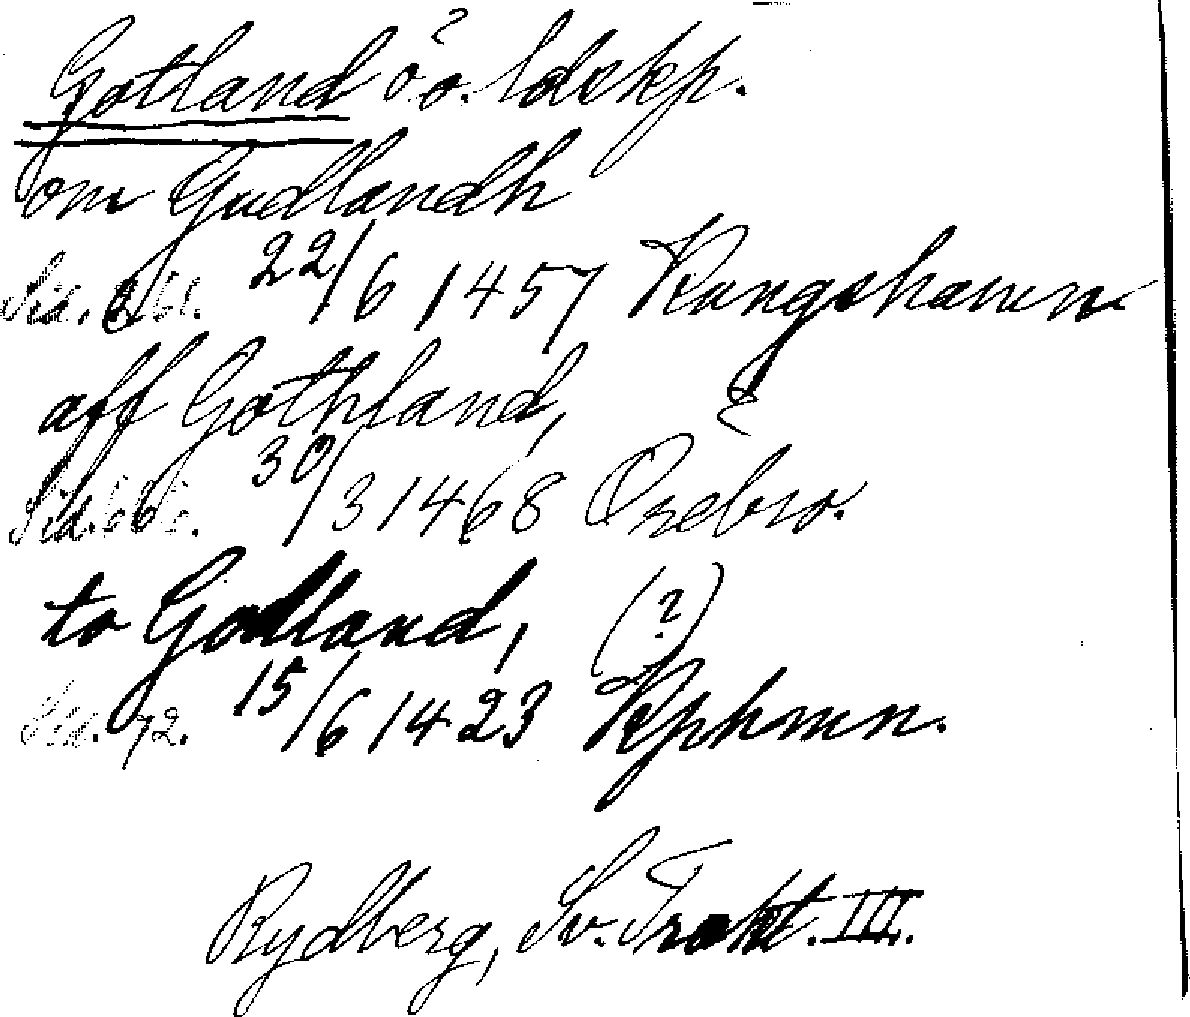 Gotland ö o. ldskp.
om Gudlandh
Sid. 22/6 1457 Kungshamn
aff Gothland,
Sid. 66 30/3 1468 Örebro.
to Godland, (?)
Sid. 72. 15/6 1423 Kphmn.
Rydberg, Sv. Trakt. III.